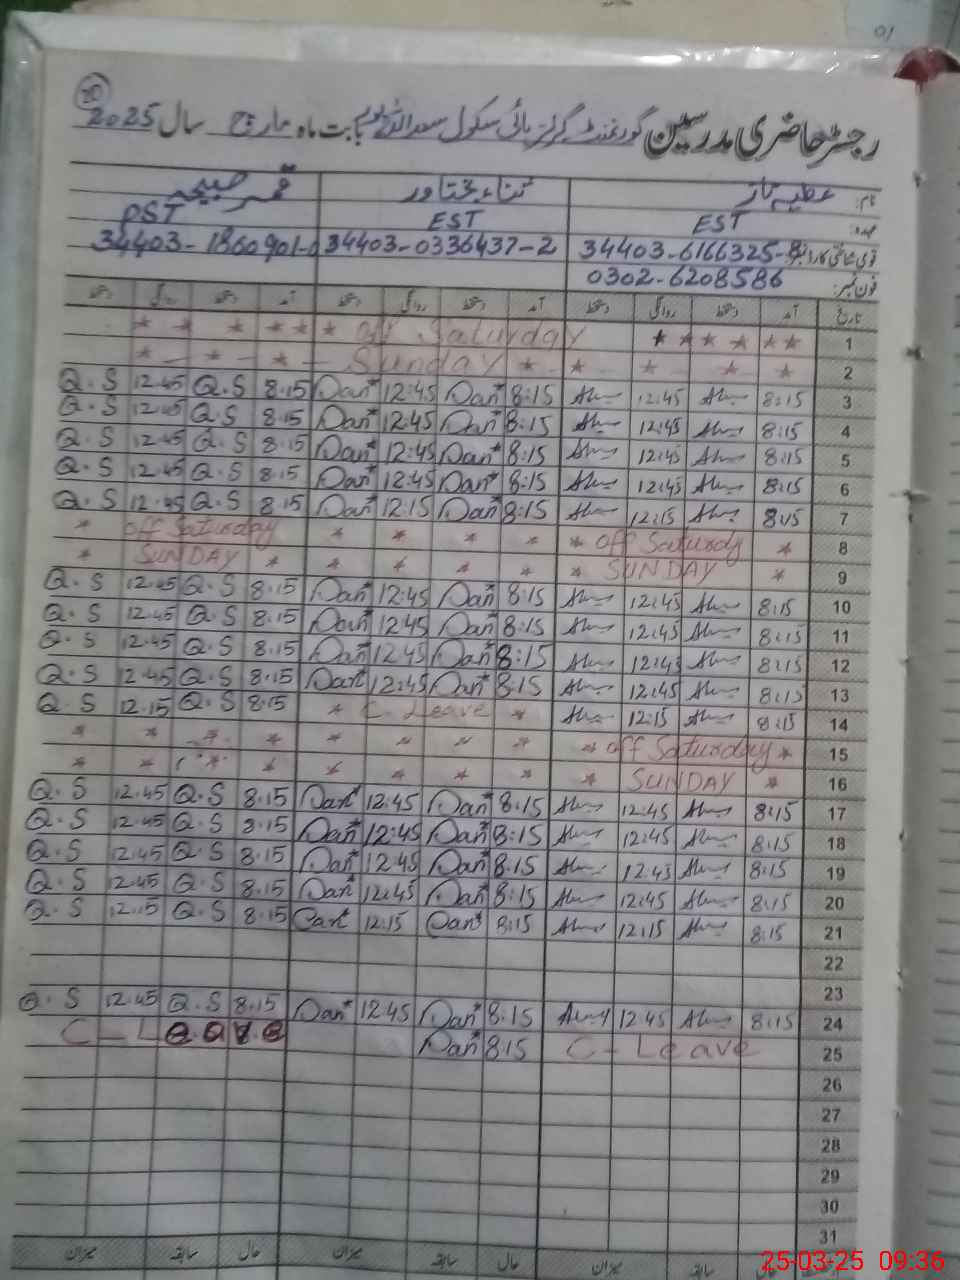 20
رجسٹر حاضری مدرسین گورنمنٹ گرلز ہائی سکول سعداللہ پور بابت ماہ مارچ سال 2025
نام: عطیہ ناز ثناء بختاور قمر صبیحہ
عہدہ: EST EST PST
قومی شناختی کارڈ نمبر 34403-6166325-8 34403-0336437-2 34403-1860901-
فون نمبر: 0302-6208586
تاریخ آمد دستخط روانگی دستخط آمد دستخط روانگی دستخط آمد دستخط روانگی دستخط
* * * * * * off Saturday * * * * * * 1
* - * - * - Sunday * - * - * - * - * 2
Q.S 12.45 Q.S 8.15 Dan* 12:45 Dan* 8:15 12:45 8:15 3
Q.S 12.45 Q.S 8.15 Dan* 12:45 Dan* 8:15 12:45 8:15 4
Q.S 12.45 Q.S 8.15 Dan* 12:45 Dan* 8:15 12:45 8:15 5
Q.S 12.45 Q.S 8.15 Dan* 12:45 Dan* 8:15 12:45 8:15 6
Q.S 12.45 Q.S 8.15 Dan* 12:15 Dan* 8:15 12:15 8:15 7
* off Saturday * * * * * off Saturdy * 8
* SUNDAY * * * * * * SUNDAY * 9
Q.S 12.45 Q.S 8.15 Dan* 12:45 Dan* 8:15 12:45 8:15 10
Q.S 12.45 Q.S 8.15 Dan* 12:45 Dan* 8:15 12:45 8:15 11
Q.S 12.45 Q.S 8.15 Dan* 12:45 Dan* 8:15 12:45 8:15 12
Q.S 12.45 Q.S 8.15 Dan* 12:45 Dan* 8.15 12:45 8:15 13
Q.S 12.15 Q.S 8.15 * C-Leave * 12:15 8:15 14
* * * * * * * * * off Saturday * 15
* * * * * * * * * SUNDAY * 16
Q.S 12.45 Q.S 8.15 Dan* 12:45 Dan* 8:15 12:45 8:15 17
Q.S 12.45 Q.S 8.15 Dan* 12:45 Dan* 8:15 12:45 8:15 18
Q.S 12.45 Q.S 8.15 Dan* 12:45 Dan* 8.15 12:45 8:15 19
Q.S 12.45 Q.S 8.15 Dan* 12:45 Dan* 8:15 12:45 8:15 20
Q.S 12.15 Q.S 8.15 Dan* 12.15 Dan* 8:15 12:15 8:15 21
22
23
Q.S 12.45 Q.S 8.15 Dan* 12:45 Dan* 8:15 12:45 8:15 24
C-Leave Dan* 8:15 C-Leave 25
26
27
28
29
30
31
حال سابقہ میزان حال سابقہ میزان حال سابقہ میزان
25-03-25 09:36